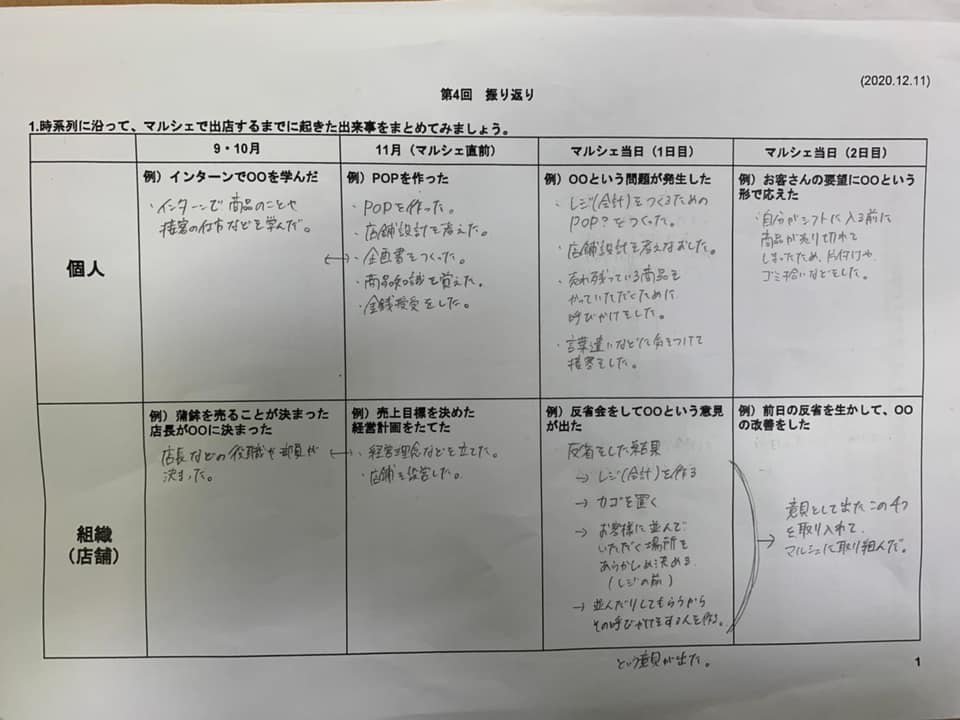 (2020.12.11)
第4回 振り返り
1.時系列に沿って、マルシェで出店するまでに起きた出来事をまとめてみましょう。
9・10月
11月（マルシェ直前）
マルシェ当日（1日目）
マルシェ当日（2日目）
個人
例）インターンで〇〇を学んだ
・インターンで商品のことや
接客の仕方などを学んだ。
例）POPを作った
・POPを作った。
・店舗設計を考えた。
・企画書をつくった。
・商品知識を覚えた。
・金銭授受をした。
例）〇〇という問題が発生した
・レジ(会計)をつくるための
POP?をつくった。
・店舗設計を考えなおした。
・売れ残っている商品を
かっていただくために
呼びかけをした。
・言葉遣いなどに気をつけて
接客をした。
例）お客さんの要望に〇〇という
形で応えた
・自分がシフトに入る前に
商品が売り切れて
しまったため、片付けや
ゴミ拾いなどをした。
組織
（店舗）
例）蒲鉾を売ることが決まった
店長が〇〇に決まった
店長などの役職や部員が
決まった。
例）売上目標を決めた
経営計画をたてた
・経営理念などを立てた。
・店舗を設営した。
例）反省会をして〇〇という意見
が出た
反省をした結果
→ レジ(会計)を作る
→ カゴを置く
→ お客様に並んで
いただく場所を
あらかじめ決める
(レジの前)
→ 並んだりしてもらうから
その呼びかけをする人を作る。
という意見が出た。
例）前日の反省を生かして、〇〇
の改善をした
→ 意見として出たこの4つ
を取り入れて
マルシェに取り組んだ。
1